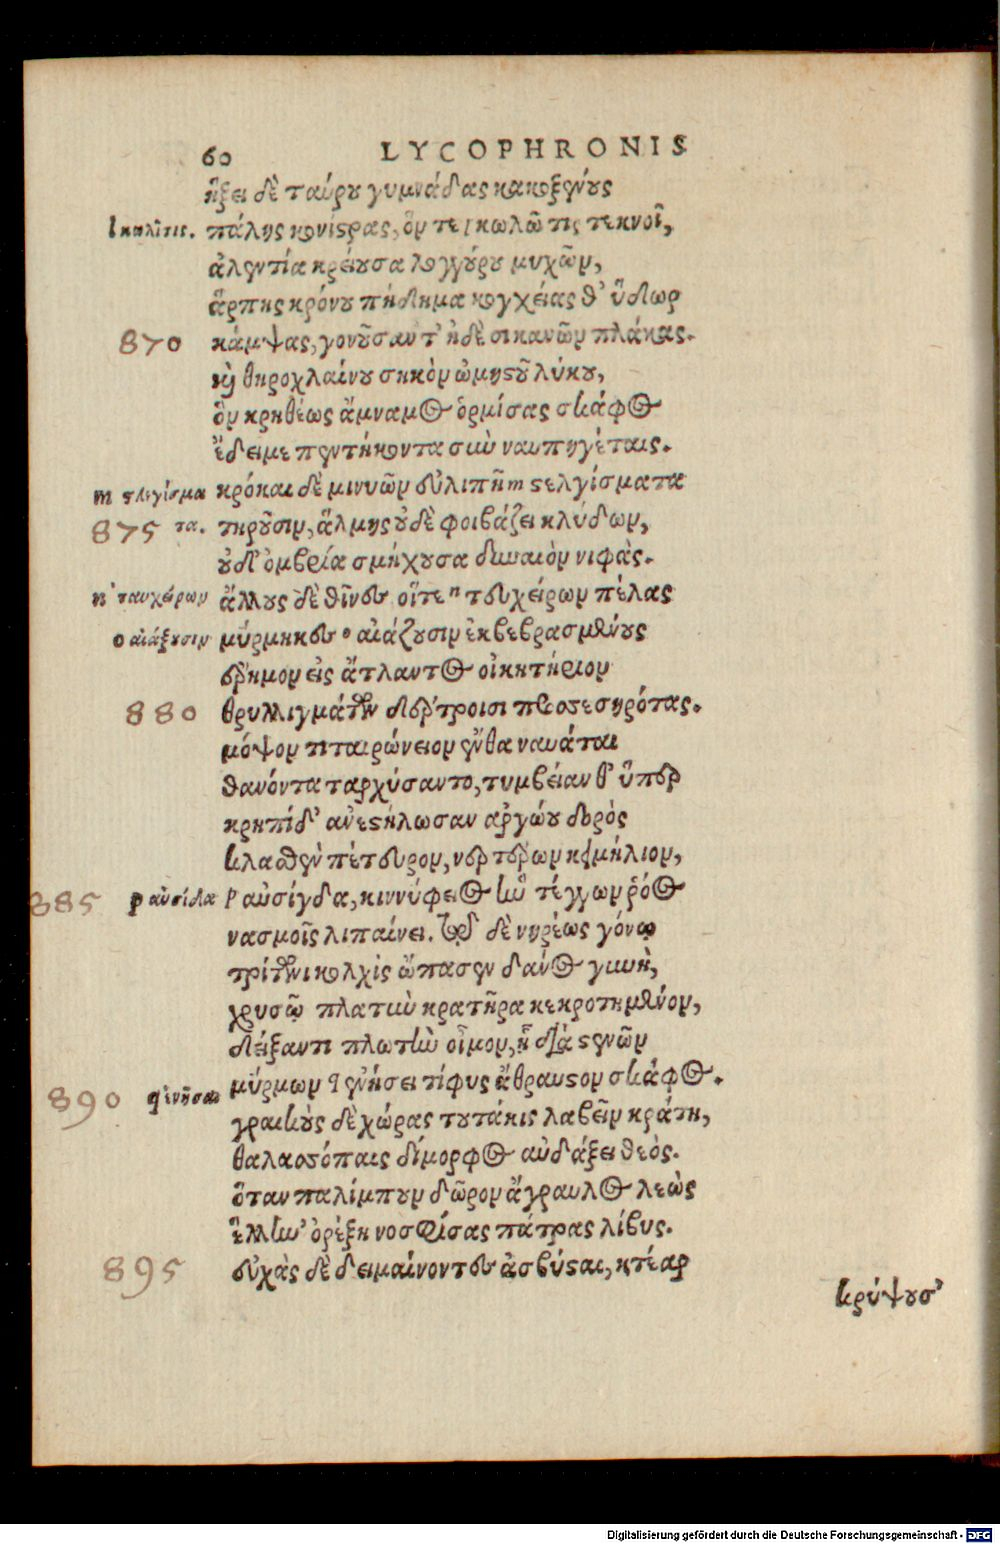 60 LYCOPHRONIS
ἥξει δὲ ταύρου γυμνάδας κακοξένους
l κωλῖτις. πάλης κονίστρας, ὅν τε l κωλῶτις τεκνοῖ,
ἀλεντία κρείουσα λογγούρου μυχῶν,
ἅρπης κρόνου πήδημα κογχείας θ' ὕδωρ
870 κάμψας, γονοῦσάν τ' ἠδὲ σικανῶν πλάκας.
καὶ θηροχλαίνου σηκὸν ὠμηστοῦ λύκου,
ὃν κρηθέως ἄμναμος ὁρμίσας σκάφος
ἔδειμε πεντήκοντα σὺν ναυπηγέταις.
m στλεγίσμα κρόκαι δὲ μινυῶν εὐλιπῆ m στελγίσματα
875 τα. τηροῦσιν, ἅλμης οὐδὲ φοιβάζει κλύδων,
οὐδ' ὀμβρία σμήχουσα δηναιὸν νιφάς.
n ταυχείρων ἄλλους δὲ θῖνες οἵ τε n τευχείρων πέλας
o αἰάξουσιν μύρμηκες o αἰάζουσιν ἐκβεβρασμένους
ἔρημον εἰς ἄτλαντος οἰκητήριον
880 θρυλλιγμάτων δέρτροισι προσεσηρότας.
μόψον τιταιρώνειον ἔνθα ναυάται
θανόντα ταρχύσαντο, τυμβείαν θ' ὕπερ
κρηπίδ' ἀνεστήλωσαν ἀργώου δορὸς
κλασθὲν πέτευρον, νερτέρων κειμήλιον,
885 p αὐσίδα p αὐσίγδα, κιννύφειος ἣν τέγγων ῥόος
νασμοῖς λιπαίνει. τῷ δὲ νηρέως γόνῳ
τρίτωνι κολχὶς ὤπασεν δάνος γυνὴ,
χρυσῷ πλατὺν κρατῆρα κεκροτημένον,
δείξαντι πλωτὴν οἶμον, ᾗ διὰ στενῶν
890 q ἐνῆσαι μύρμων q ἐνήσει τίφυς ἄθραυστον σκάφος.
γραικοὺς δὲ χώρας τουτάκις λαβεῖν κράτη,
θαλασσόπαις δίμορφος αὐδάξει θεὸς.
ὅταν παλίμπουν δῶρον ἄγραυλος λεὼς
ἕλλην' ὀρέξῃ νοσφίσας πάτρας λίβυς.
895 εὐχὰς δὲ δειμαίνοντες ἀσβύσται, κτέαρ
κρύψουσ'
Digitalisierung gefördert durch die Deutsche Forschungsgemeinschaft - DFG